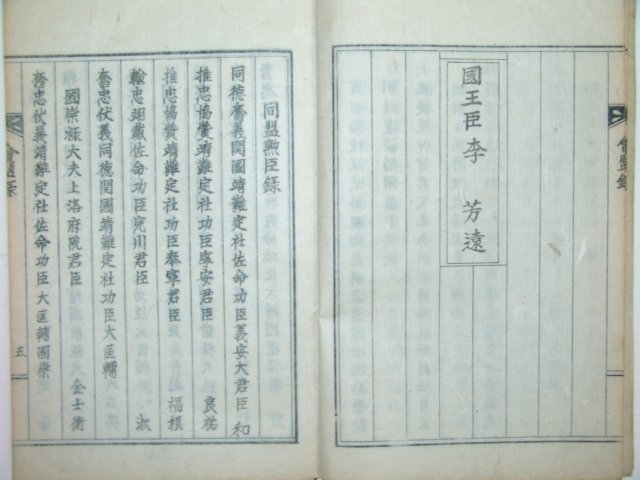 會盟錄
國王臣李 芳遠
同盟勲臣錄
同德奮義開國靖難定社佐命功臣義安大君臣 和
推忠協賛靖難定社功臣寧安君臣 良祐
推忠協賛靖難定社功臣奉寧君臣 福根
輸忠翊戴佐命功臣完川君臣 淑
奮忠仗義同德開國靖難定社功臣大匡輔
國崇祿大夫上洛府院君臣 金士衡
奮忠仗義靖難定社佐命功臣大匡輔國崇
會盟錄
五